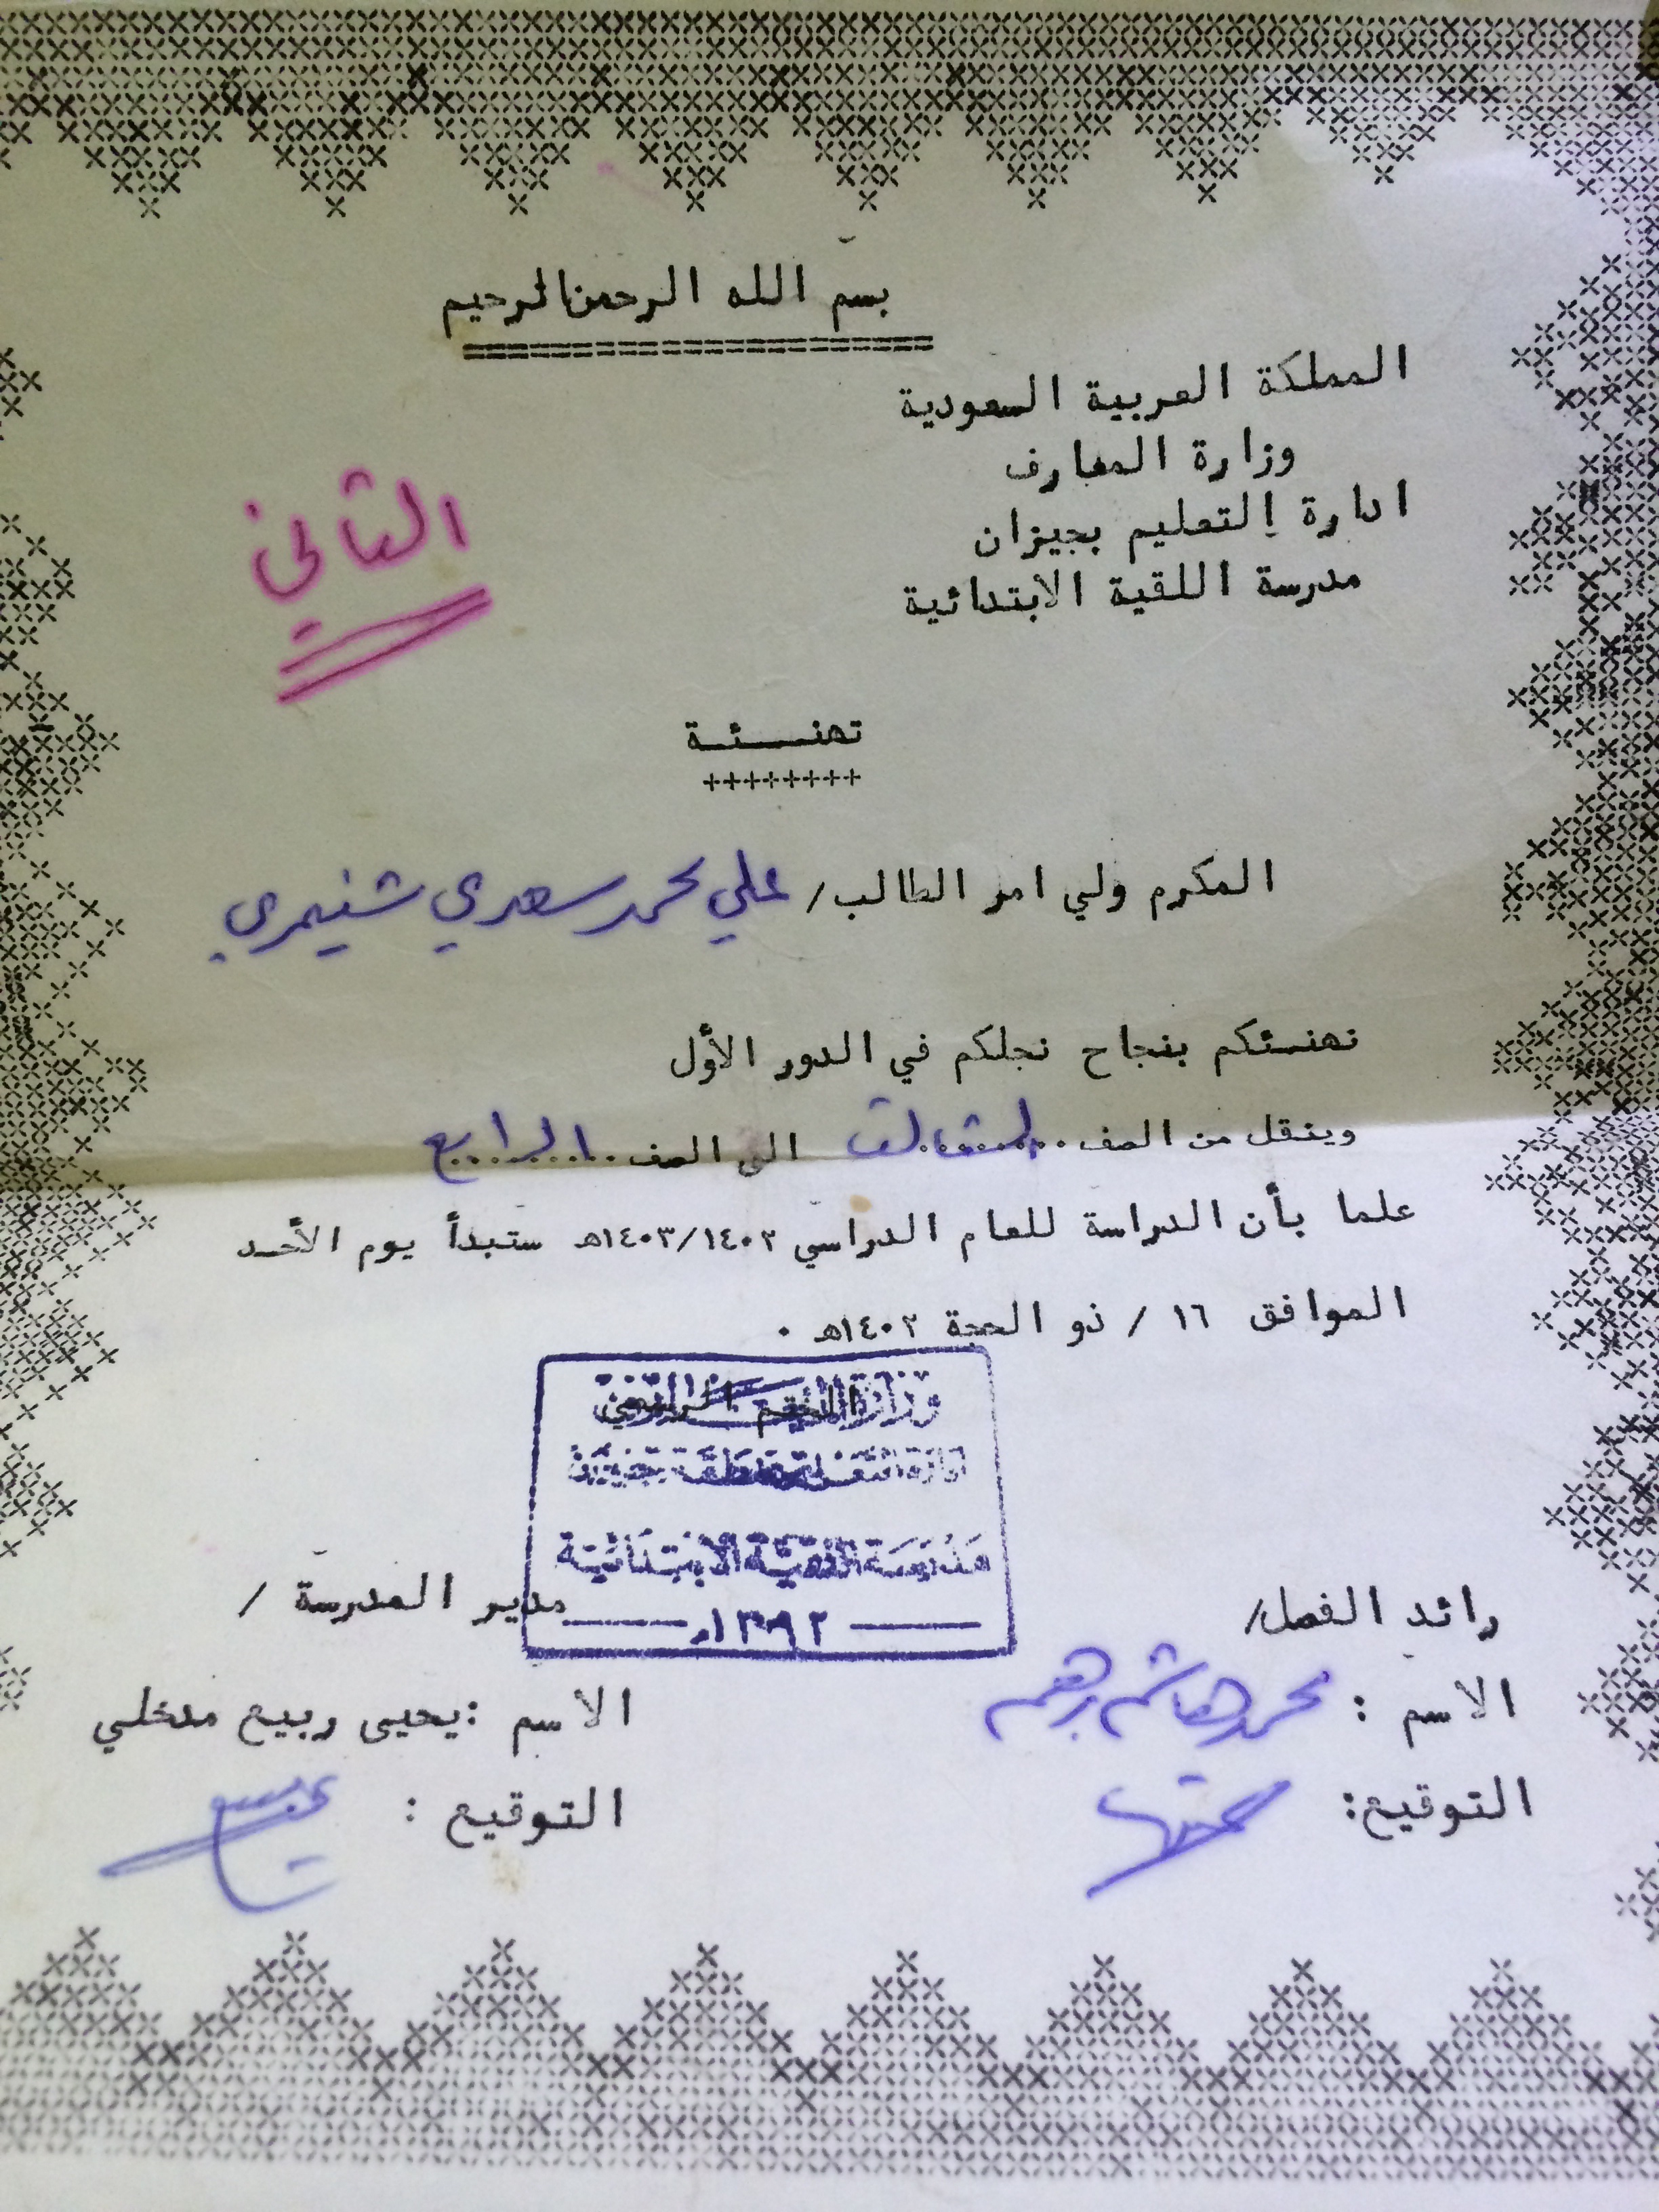 بسم الله الرحمن الرحيم
المملكة العربية السعودية
وزارة المعارف
ادارة التعليم بجيزان
مدرسة اللقية الابتدائية
الثاني
تهنــئــة
++++++++
المكرم ولي امر الطالب/ علي محمد سعدي شنيمري
نهنــئكم بنجاح نجلكم في الدور الأول
وينقل من الصف ..الثالث.. الى الصف ..الرابع..
علما بأن الدراسة للعام الدراسي ١٤٠٣/١٤٠٢هـ ستبدأ يوم الأحد
الموافق ١٦ / ذو الحجة ١٤٠٢هـ ٠
الختم الرسمي
وزارة المعارف
مدرسة اللقية الابتدائية
١٣٩٢هـ
رائد الفصل/
الاسم : محمد هاشم
التوقيع:
مدير المدرسة /
الاسم :يحيى ربيع مدخلي
التوقيع :